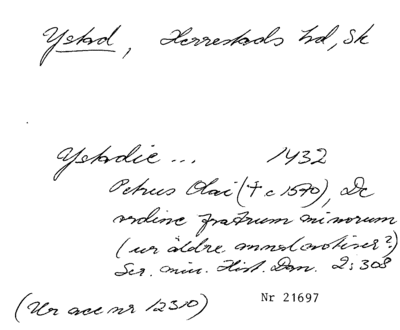 Ystad, Herrestads hd, Sk
Ystadie ... 1432
Petrus Olai († c 1570), De
ordine fratrum minorum
(ur äldre annalnotiser?)
Scr. min. Hist. Dan. 2:308
(Ur acc nr 12310) Nr 21697